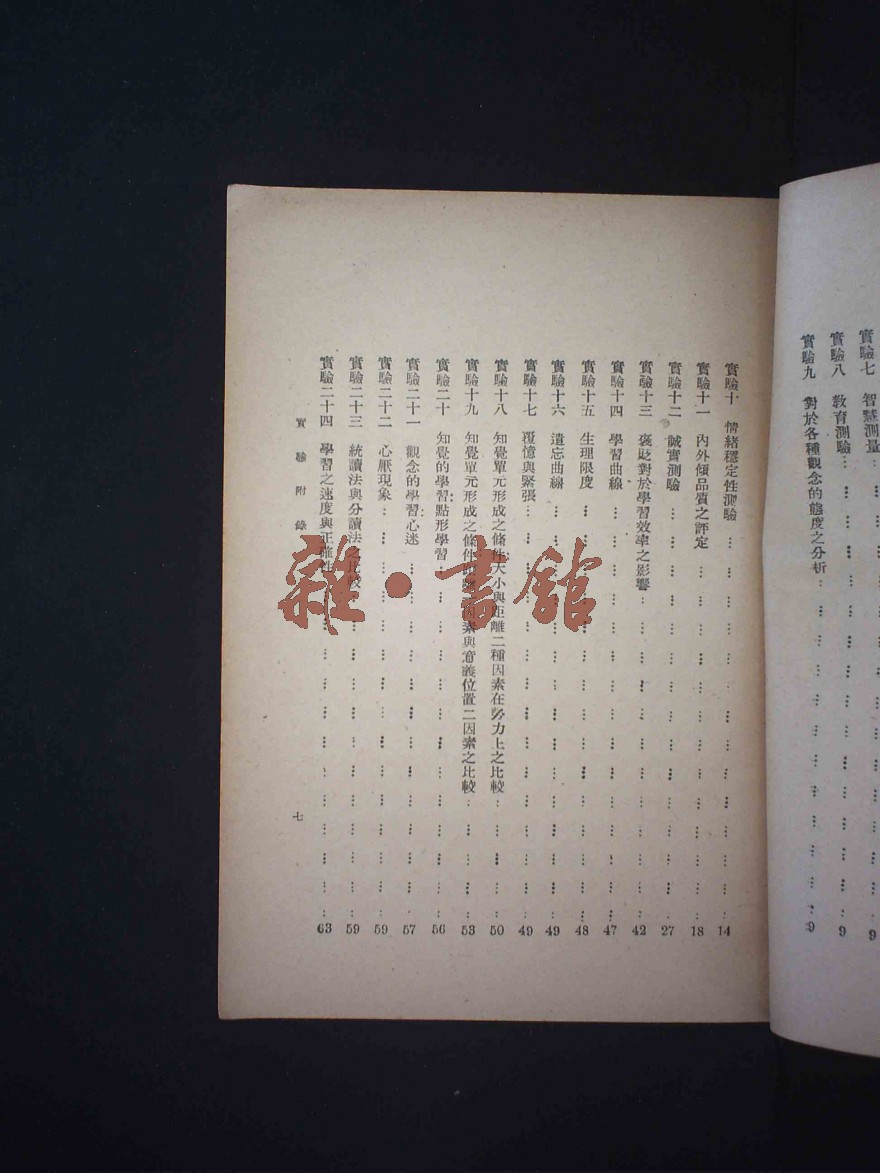 實驗七 智慧測量 9
實驗八 教育測驗 9
實驗九 對於各種觀念的態度之分析 9
實驗十 情緒穩定性測驗 14
實驗十一 內外傾品質之評定 18
實驗十二 誠實測驗 27
實驗十三 褒貶對於學習效率之影響 42
實驗十四 學習曲線 47
實驗十五 生理限度 48
實驗十六 遺忘曲線 49
實驗十七 覆憶與緊張 49
實驗十八 知覺單元形成之條件大小與距離二種因素在勢力上之比較 50
實驗十九 知覺單元形成之條件 因素與意義位置二因素之比較 53
實驗二十 知覺的學習點形學習 56
實驗二十一 觀念的學習心迷 57
實驗二十二 心厭現象 59
實驗二十三 統讀法與分讀法之比較 59
實驗二十四 學習之速度與正確性 63
實驗附錄
七
雜·書館